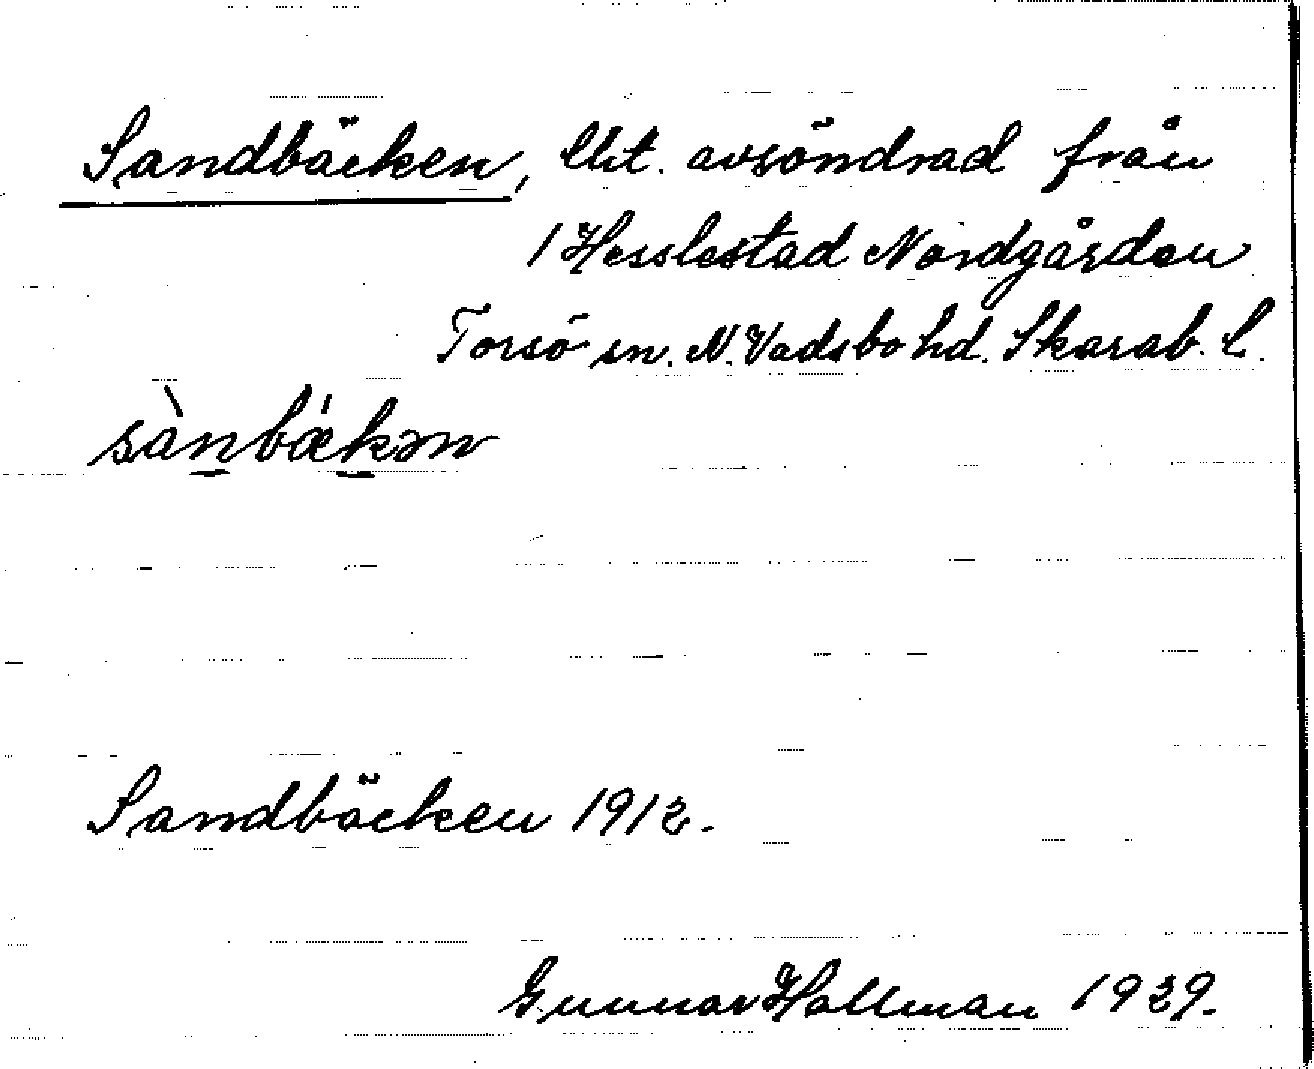 Sandbäcken, lht. avsöndrad från
1 Hesslestad Nordgården
Torsö sn. N. Vadsbo hd. Skarab. l.
sànbǽkən
Sandbäcken 1912.
Gunnar Hallman 1929.